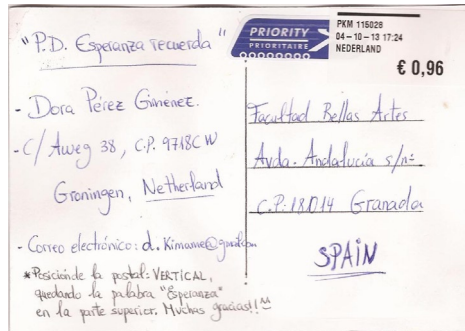 "P.D. Esperanza recuerda"
- Dora Pérez Giménez.
- C/ Aweg 38, C.P. 9718CW
Groningen, Netherland
- Correo electrónico: d.Kimame@gmail.com
*Posición de la postal: VERTICAL,
quedando la palabra "Esperanza"
en la parte superior. Muchas gracias!!
PRIORITY
PRIORITAIRE
PKM 115028
04-10-13 17:24
NEDERLAND
€ 0,96
Facultad Bellas Artes
Avda. Andalucía s/nº
C.P.:18.014 Granada
SPAIN